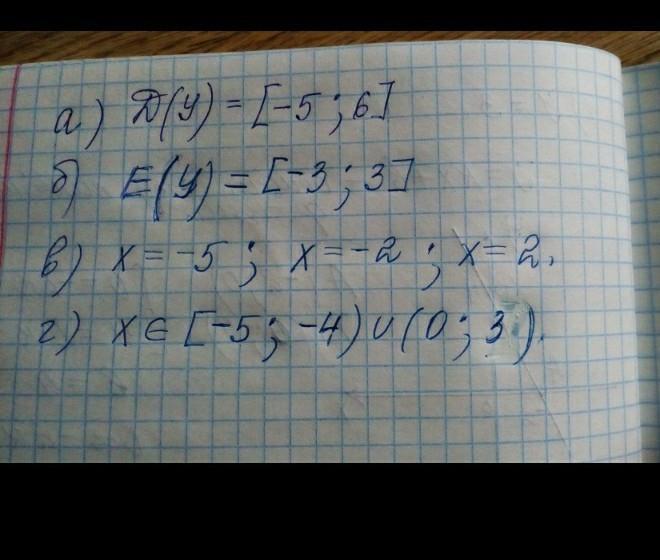 а) Д(у) = [-5 ; 6]
б) E(у) = [-3 ; 3]
в) x = -5 ; x = -2 ; x = 2,
г) x ∈ [-5 ; -4) ∪ (0 ; 3).